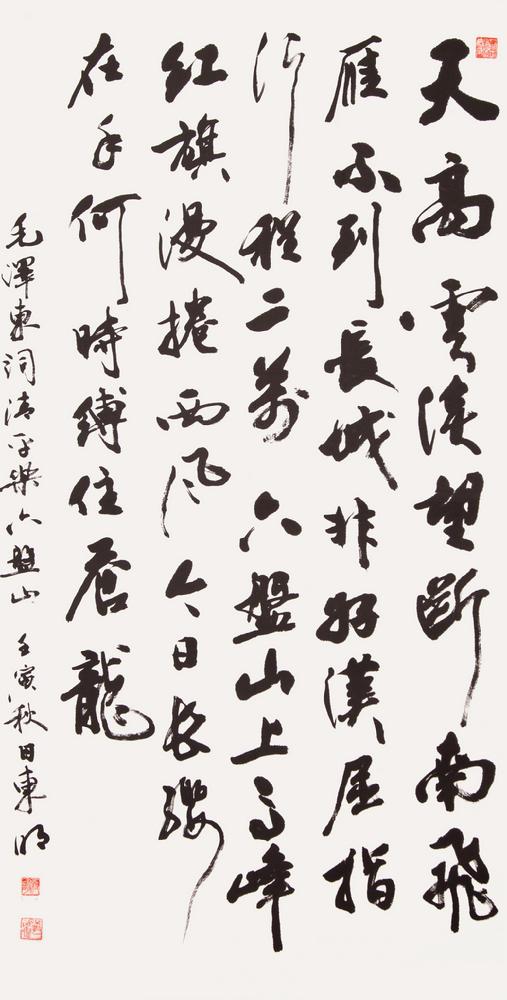 天高雲淡望斷南飛
雁不到長城非好漢屈指
行程二萬六盤山上高峰
红旗漫捲西风今日长缨
在手何時縛住蒼龍
毛澤東词清平樂六盤山 壬寅秋日東明